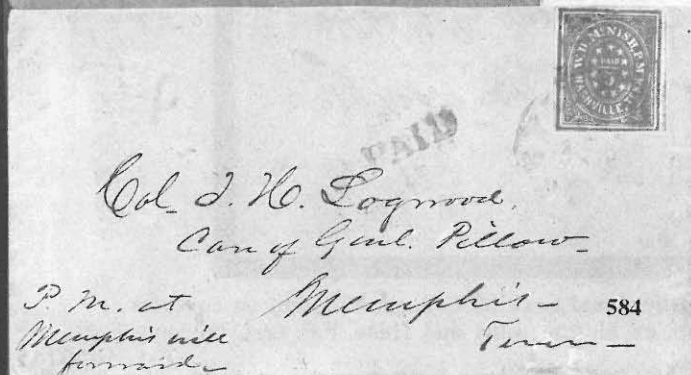 W.D. M'NISH, P.M.
PAID
NASHVILLE, TEN.
PAID
Col. T. H. Logwood.
Care of Genl. Pillow
Memphis
Tenn
P. M. at
Memphis will
forward
584